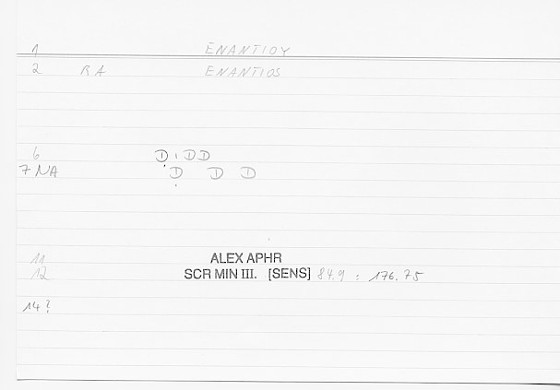 1 ENANTIOY
2 RA ENANTIOS
6 D , D D
7 NA D D D
11 ALEX APHR
12 SCR MIN III. [SENS] 84.9 : 176.75
14?